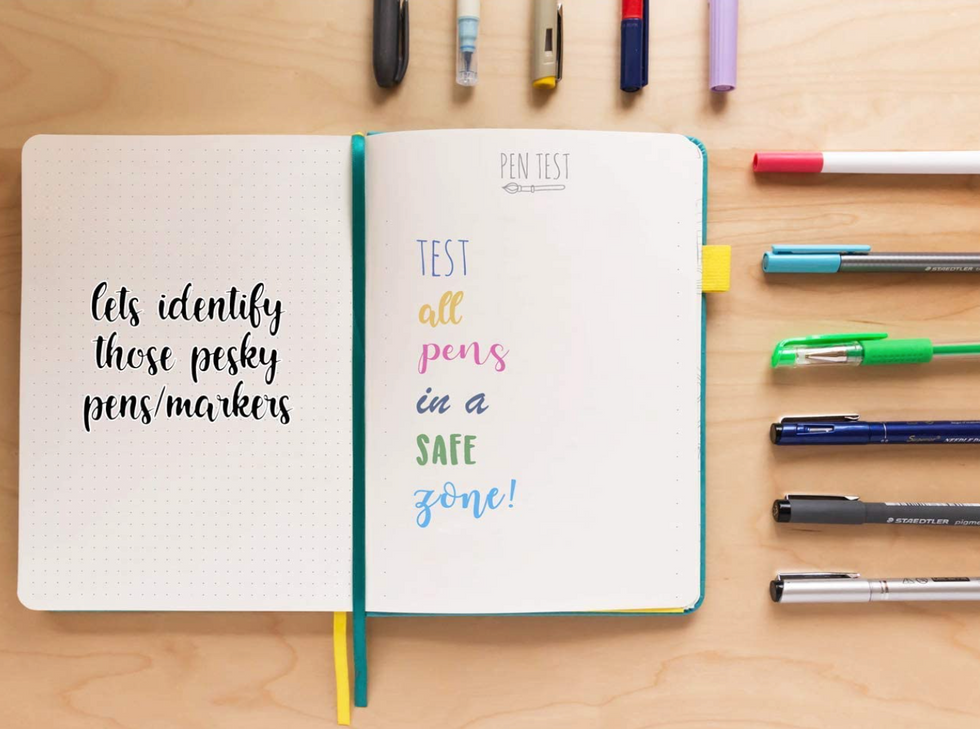 PEN TEST
TEST
all
pens
in a
SAFE
zone!
lets identify
those pesky
pens/markers
STAEDTLER
STAEDTLER pigm